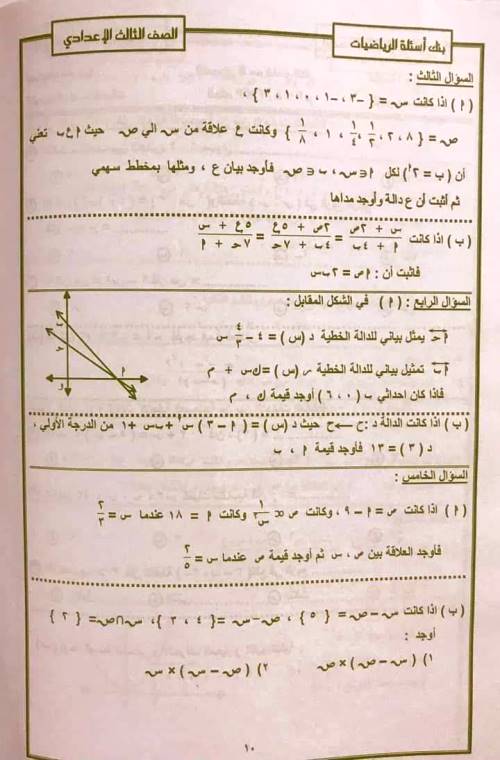 بنك أسئلة الرياضيات
الصف الثالث الإعدادي
السؤال الثالث :
( ٢ ) اذا كانت س = { -٣ ، -١ ، ٠ ، ١ ، ٣ } ،
ص = { ٨ ، ٢ ، ١/٢ ، ١/٤ ، ١ ، ١/٨ } وكانت ع علاقة من س الي ص حيث ٢ ع ب تعني
أن ( ب = ٢^٢ ) لكل ٢ ∈ س ، ب ∈ ص فأوجد بيان ع ، ومثلها بمخطط سهمي
ثم أثبت أن ع دالة وأوجد مداها
( ب ) اذا كانت (س + ٢ص)/(٢ + ٤ب) = (٢ص + ٥ع)/(٤ب + ٧حـ) = (٥ع + س)/(٧حـ + ٢)
فاثبت أن : ٢ص = ٢ب س
السؤال الرابع : ( ٢ ) في الشكل المقابل :
٢حـ يمثل بياني للدالة الخطية د ( س ) = ٤ - ٤/٣ س
٢ب تمثيل بياني للدالة الخطية ر ( س ) = ك س + م
فاذا كان احداثي ب ( ٠ ، ٦ ) أوجد قيمة ك ، م
٤
٢
و
( ب ) اذا كانت الدالة د : ح ← ح حيث د ( س ) = ( ٢ - ٣ ) س٢ + ب س + ١ من الدرجة الأولي ،
د ( ٣ ) = ١٣ فأوجد قيمة ٢ ، ب
السؤال الخامس :
( ٢ ) اذا كانت ص = ٢ - ٩ ، وكانت ص ∝ ١/س٢ وكانت ٢ = ١٨ عندما س = ٢/٣
فأوجد العلاقة بين ص ، س ثم أوجد قيمة ص عندما س = ٢/٥
( ب ) اذا كانت س - ص = { ٥ } ، ص - س = { ٤ ، ٣ } ، س ∩ ص = { ٢ }
أوجد :
١) ( س - ص ) × ص ٢) ( ص - س ) × س
١٠